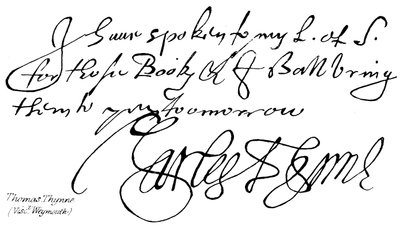 I haue spoken to my L. of S.
for those Books & I shall bring
them to you to omorrow
Thynne
Thomas Thynne
(Visc.t Weymouth)